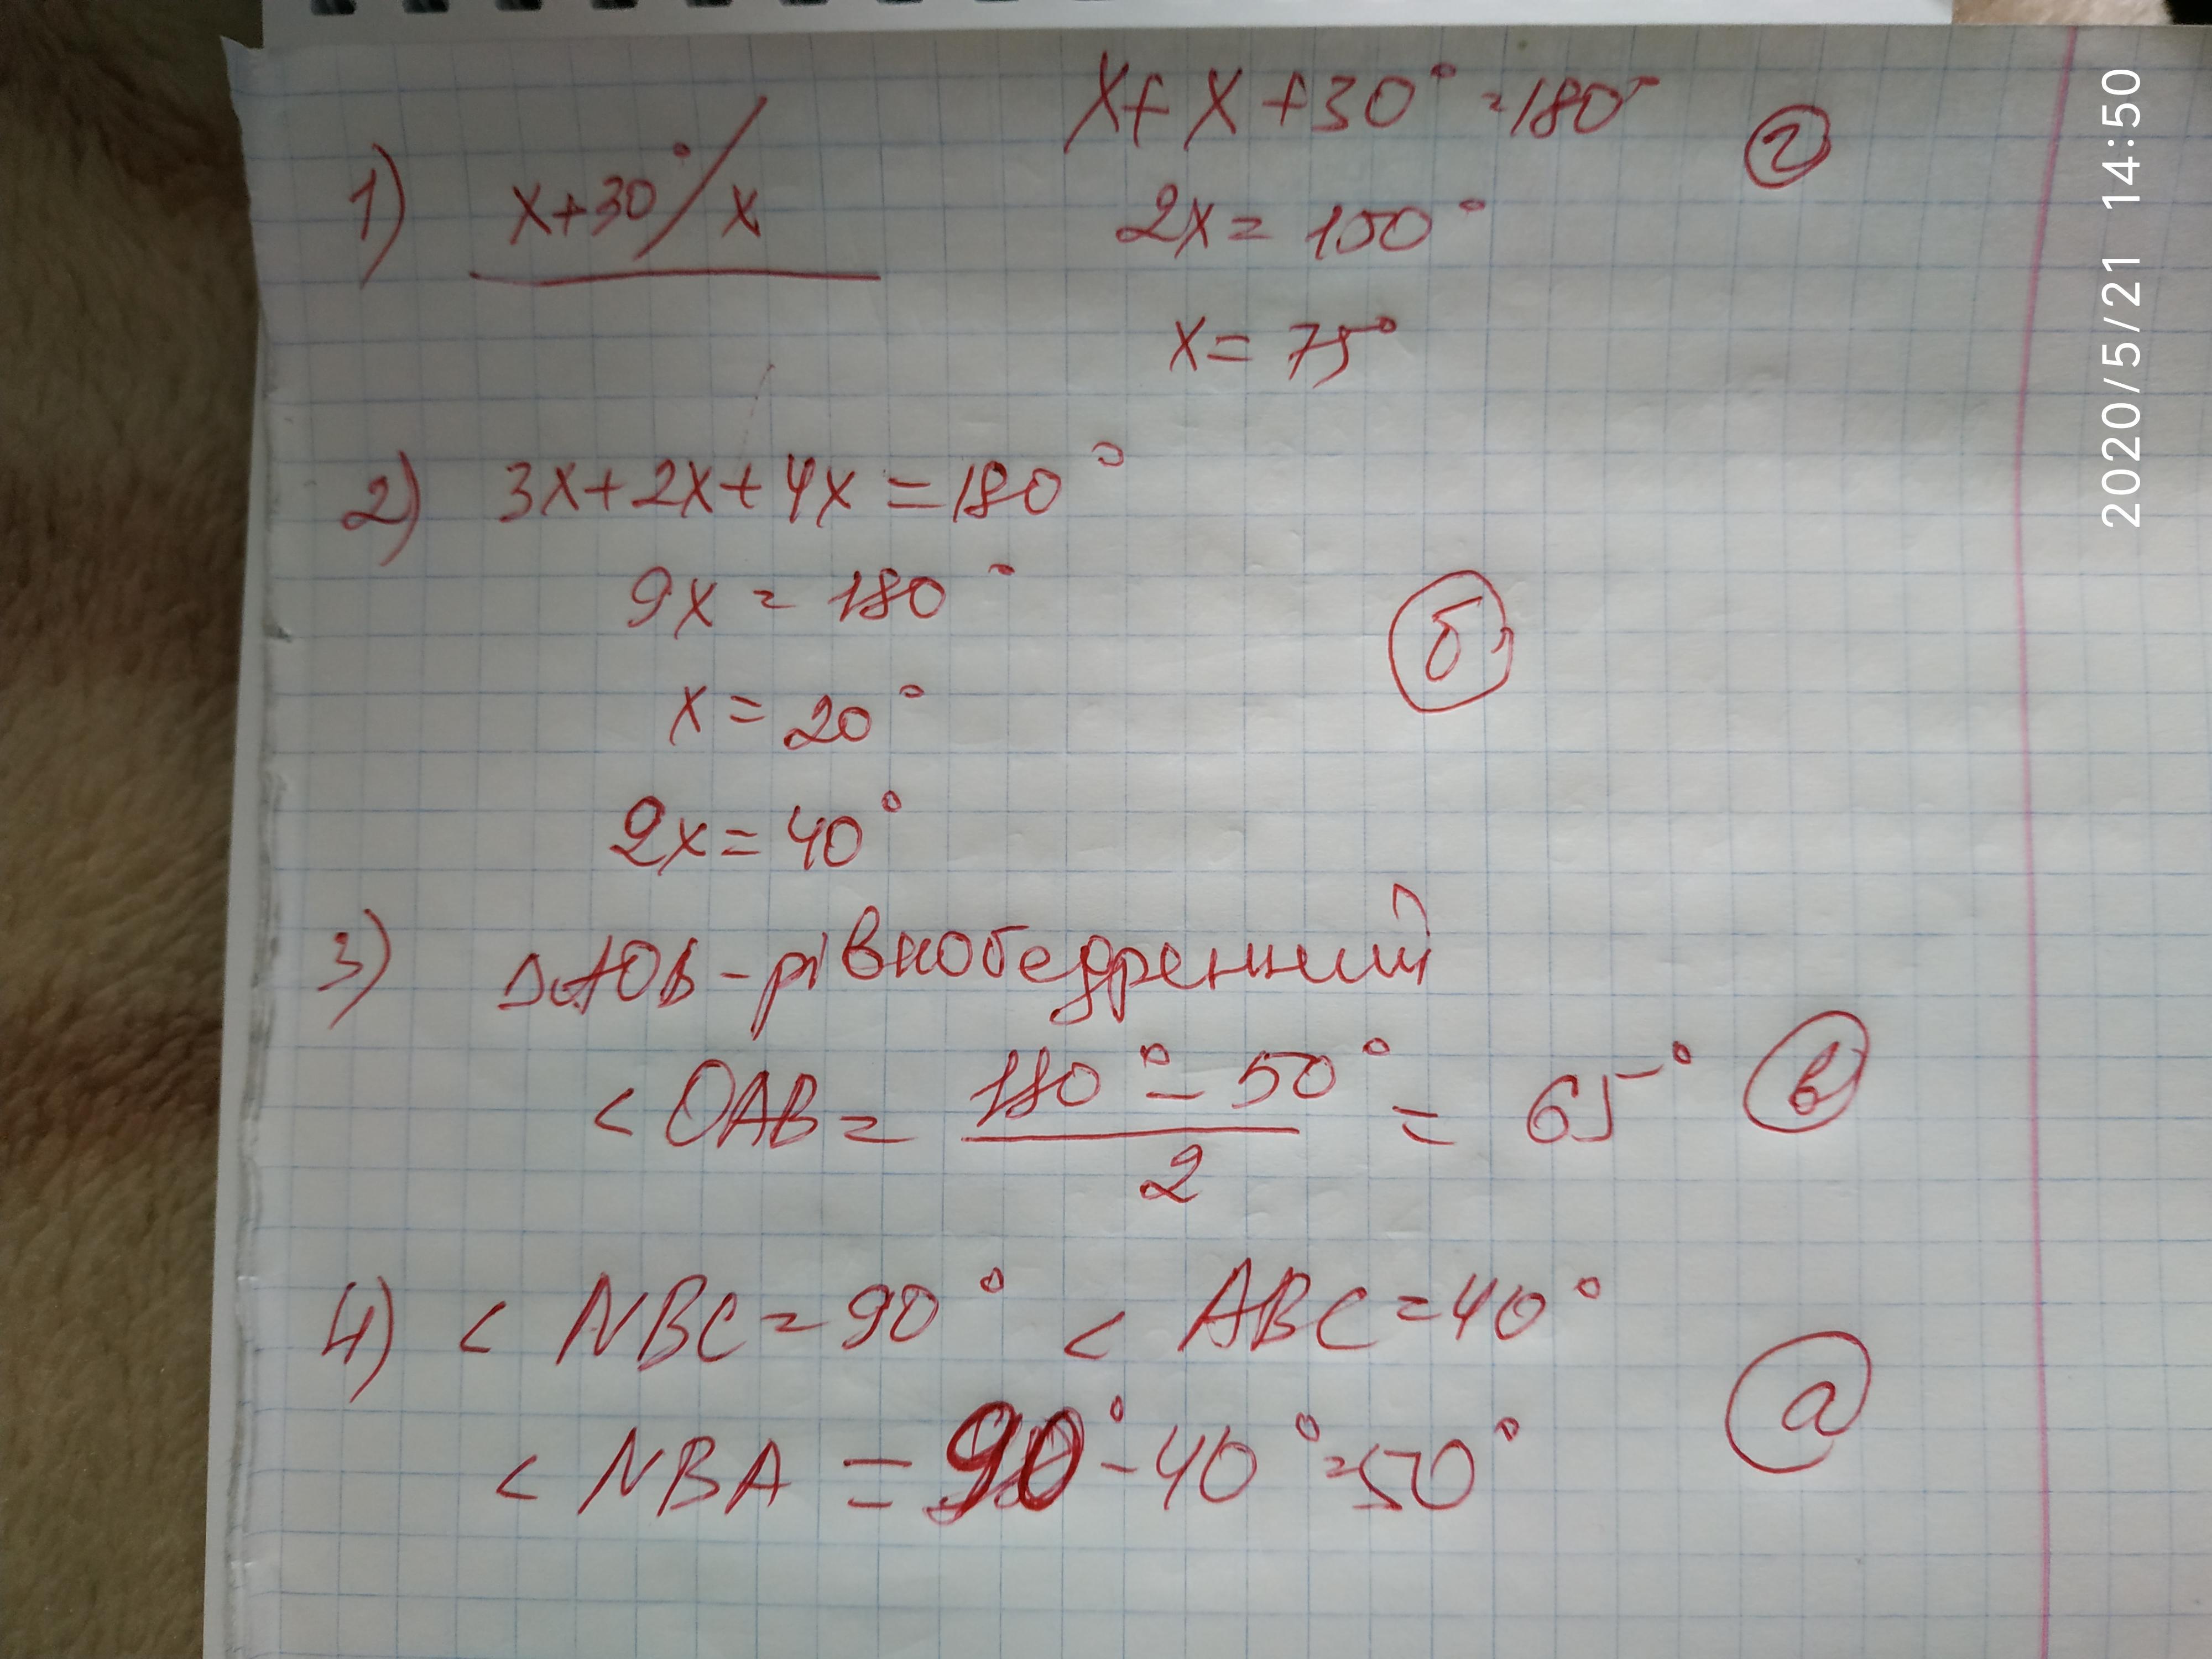 1) x+30° / x
x + x + 30° = 180°
г
2x = 150°
x = 75°
2) 3x + 2x + 4x = 180°
9x = 180°
б
x = 20°
2x = 40°
3) ΔAOB - рівнобедренний
< OAB = (180° - 50°) / 2 = 65°
в
4) < NBC = 90° < ABC = 40°
а
< NBA = 90° - 40° = 50°
2020/5/21 14:50